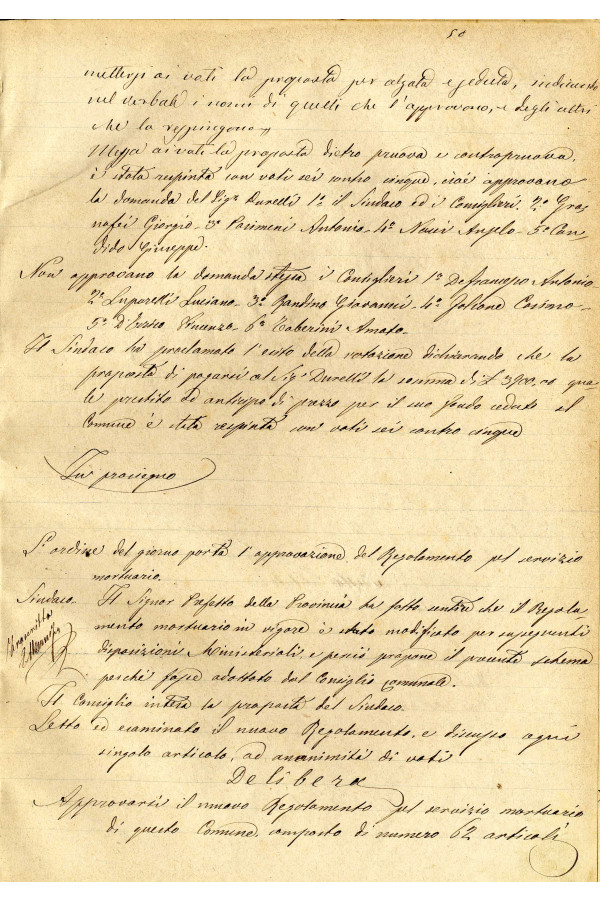 50
mettersi ai voti la proposta per alzata e seduta, indicando
nel verbale i nomi di quelli che l'approvono, e degli altri
che la respingono
Messa ai voti la proposta dietro pruova e contropruova,
è stata respinta con voti sei contro cinque, cioè approvano
la domanda del Sigr Durelli 1° il Sindaco ed i Consiglieri. 2° Gra
nafei Giorgio - 3° Pacimeni Antonio - 4° Nacci Angelo - 5° Can
dido Giuseppe.
Non approvano la domanda stessa i Consiglieri 1° Defrancesco Antonio
2° Luparelli Luciano - 3° Bandino Giovanni - 4° Cosimo -
5° D'Errico Vincenzo 6° Taberini Amato -
Il Sindaco ha proclamato l'esito della votazione dichiarando che la
proposta di pagarsi al Sigr Durelli la somma di £ 3900,00 qua
le prestito ed anticipo di prezzo per il suo fondo ceduto al
Comune è stata respinta con voti sei contro cinque
In prosieguo
L'ordine del giorno porta l'approvazione del Regolamento pel servizio
mortuario.
Sindaco - Il Signor Prefetto della Provincia ha fatto sentire che il Regola
mento mortuario in vigore è stato modificato per susseguenti
disposizioni Ministeriali, e perciò propone il presente schema
perché fosse adottato dal Consiglio comunale.
Il Consiglio intesa la proposta del Sindaco.
Letto ed esaminato il nuovo Regolamento, e discusso ogni
singolo articolo, ad unanimità di voti
Delibera
Approvarsi il nuovo Regolamento pel servizio mortuario
di questo Comune, composto di numero 62 articoli